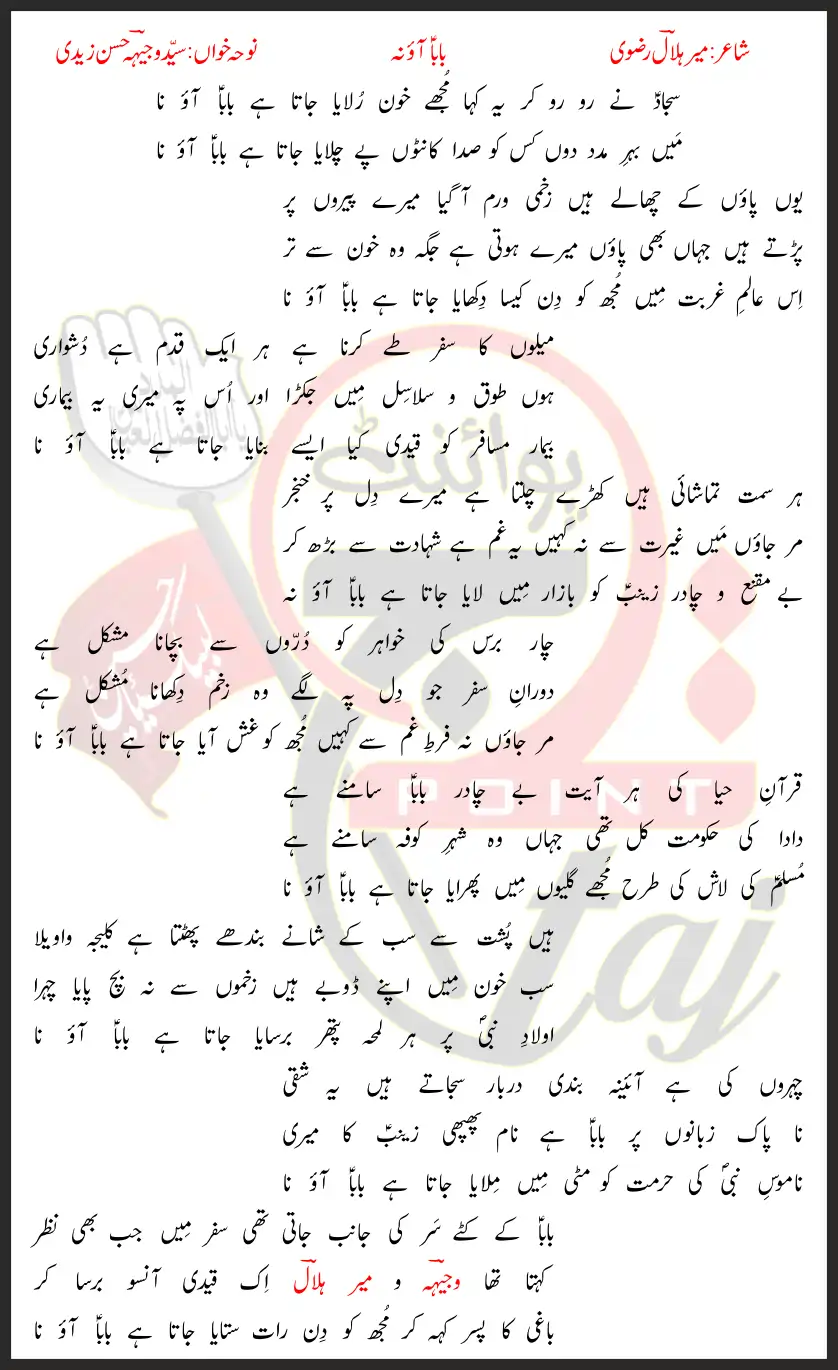 شاعر: میر ہلالؔ رضوی
باباؑ آؤ نہ
نوحہ خواں: سیّد وجیہہؔ حسن زیدی
سجادؑ نے رو رو کر یہ کہا مُجھے خون رُلایا جاتا ہے باباؑ آؤ نا
مَیں بہرِ مدد دوں کس کو صدا کانٹوں پے چلایا جاتا ہے باباؑ آؤ نا
یوں پاؤں کے چھالے ہیں زخمی ورم آ گیا میرے پیروں پر
پڑتے ہیں جہاں بھی پاؤں میرے ہوتی ہے جگہ وہ خون سے تر
اِس عالمِ غربت مِیں مُجھ کو دِن کیسا دِکھایا جاتا ہے باباؑ آؤ نا
میلوں کا سفر طے کرنا ہے ہر ایک قدم ہے دُشواری
ہوں طوق و سلاسِل مِیں جکڑا اور اُس پہ میری یہ بیماری
بیمار مسافر کو قیدی کیا ایسے بنایا جاتا ہے باباؑ آؤ نا
ہر سمت تماشائی ہیں کھڑے چلتا ہے میرے دِل پر خنجر
مر جاؤں مَیں غیرت سے نہ کہیں یہ غم ہے شہادت سے بڑھ کر
بے مقنع و چادر زینبؑ کو بازار مِیں لایا جاتا ہے باباؑ آؤ نہ
چار برس کی خواہر کو دُرّوں سے بچانا مشکل ہے
دورانِ سفر جو دِل پہ لگے وہ زخم دِکھانا مُشکل ہے
مر جاؤں نہ فرطِ غم سے کہیں مُجھ کو غش آیا جاتا ہے باباؑ آؤ نا
قرآنِ حیا کی ہر آیت بے چادر باباؑ سامنے ہے
دادا کی حکومت کل تھی جہاں وہ شہرِ کوفہ سامنے ہے
مُسلمؑ کی لاش کی طرح مُجھے گلیوں مِیں پھرایا جاتا ہے باباؑ آؤ نا
ہیں پُشت سے سب کے شانے بندھے پھٹتا ہے کلیجہ واویلا
سب خون مِیں اپنے ڈوبے ہیں زخموں سے نہ بچ پایا چہرا
اولادِ نبیؐ پر ہر لمحہ پتھر برسایا جاتا ہے باباؑ آؤ نا
چہروں کی ہے آئینہ بندی دربار سجاتے ہیں یہ شقی
نا پاک زبانوں پر باباؑ ہے نام پھپھی زینبؑ کا میری
ناموسِ نبیؐ کی حرمت کو مٹی مِیں مِلایا جاتا ہے باباؑ آؤ نا
باباؑ کے کٹے سَر کی جانب جاتی تھی سفر مِیں جب بھی نظر
کہتا تھا وجیہہؔ و میر ہلالؔ اِک قیدی آنسو برسا کر
باغی کا پسر کہہ کر مُجھ کو دِن رات ستایا جاتا ہے باباؑ آؤ نا
پوائنٹ
POINT
taj